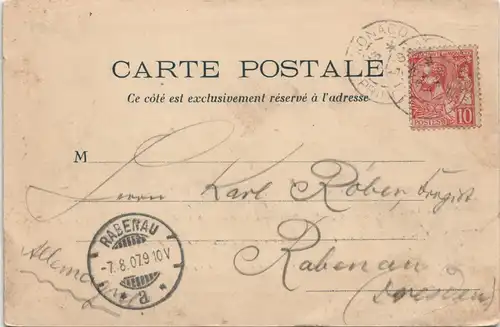 MONACO
CARTE POSTALE
Ce côté est exclusivement réservé à l'adresse
POSTES
10
M
Herrn Karl Röber, Drogist
Rabenau
(Dresden)
Allemagne
RABENAU
-7.8.07.9-10V
* a *